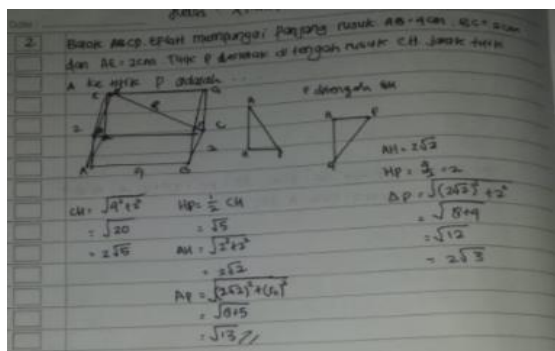 2
Balok ABCD.EFGH mempunyai panjang rusuk AB = 4cm, BC = 2cm
dan AE = 2cm Titik P berada di tengah rusuk CH. Jarak titik
A ke titik P adalah ...
P ditengah
AH = 2√2
HP = 4/2 = 2
AP = √(2√2)² + 2²
= √8+4
= √12
= 2√3
CH = √4²+2²
= √20
= 2√5
HP = 1/2 CH
= √5
AH = √2²+2²
= 2√2
AP = √(2√2)²+(√5)²
= √8+5
= √13 //